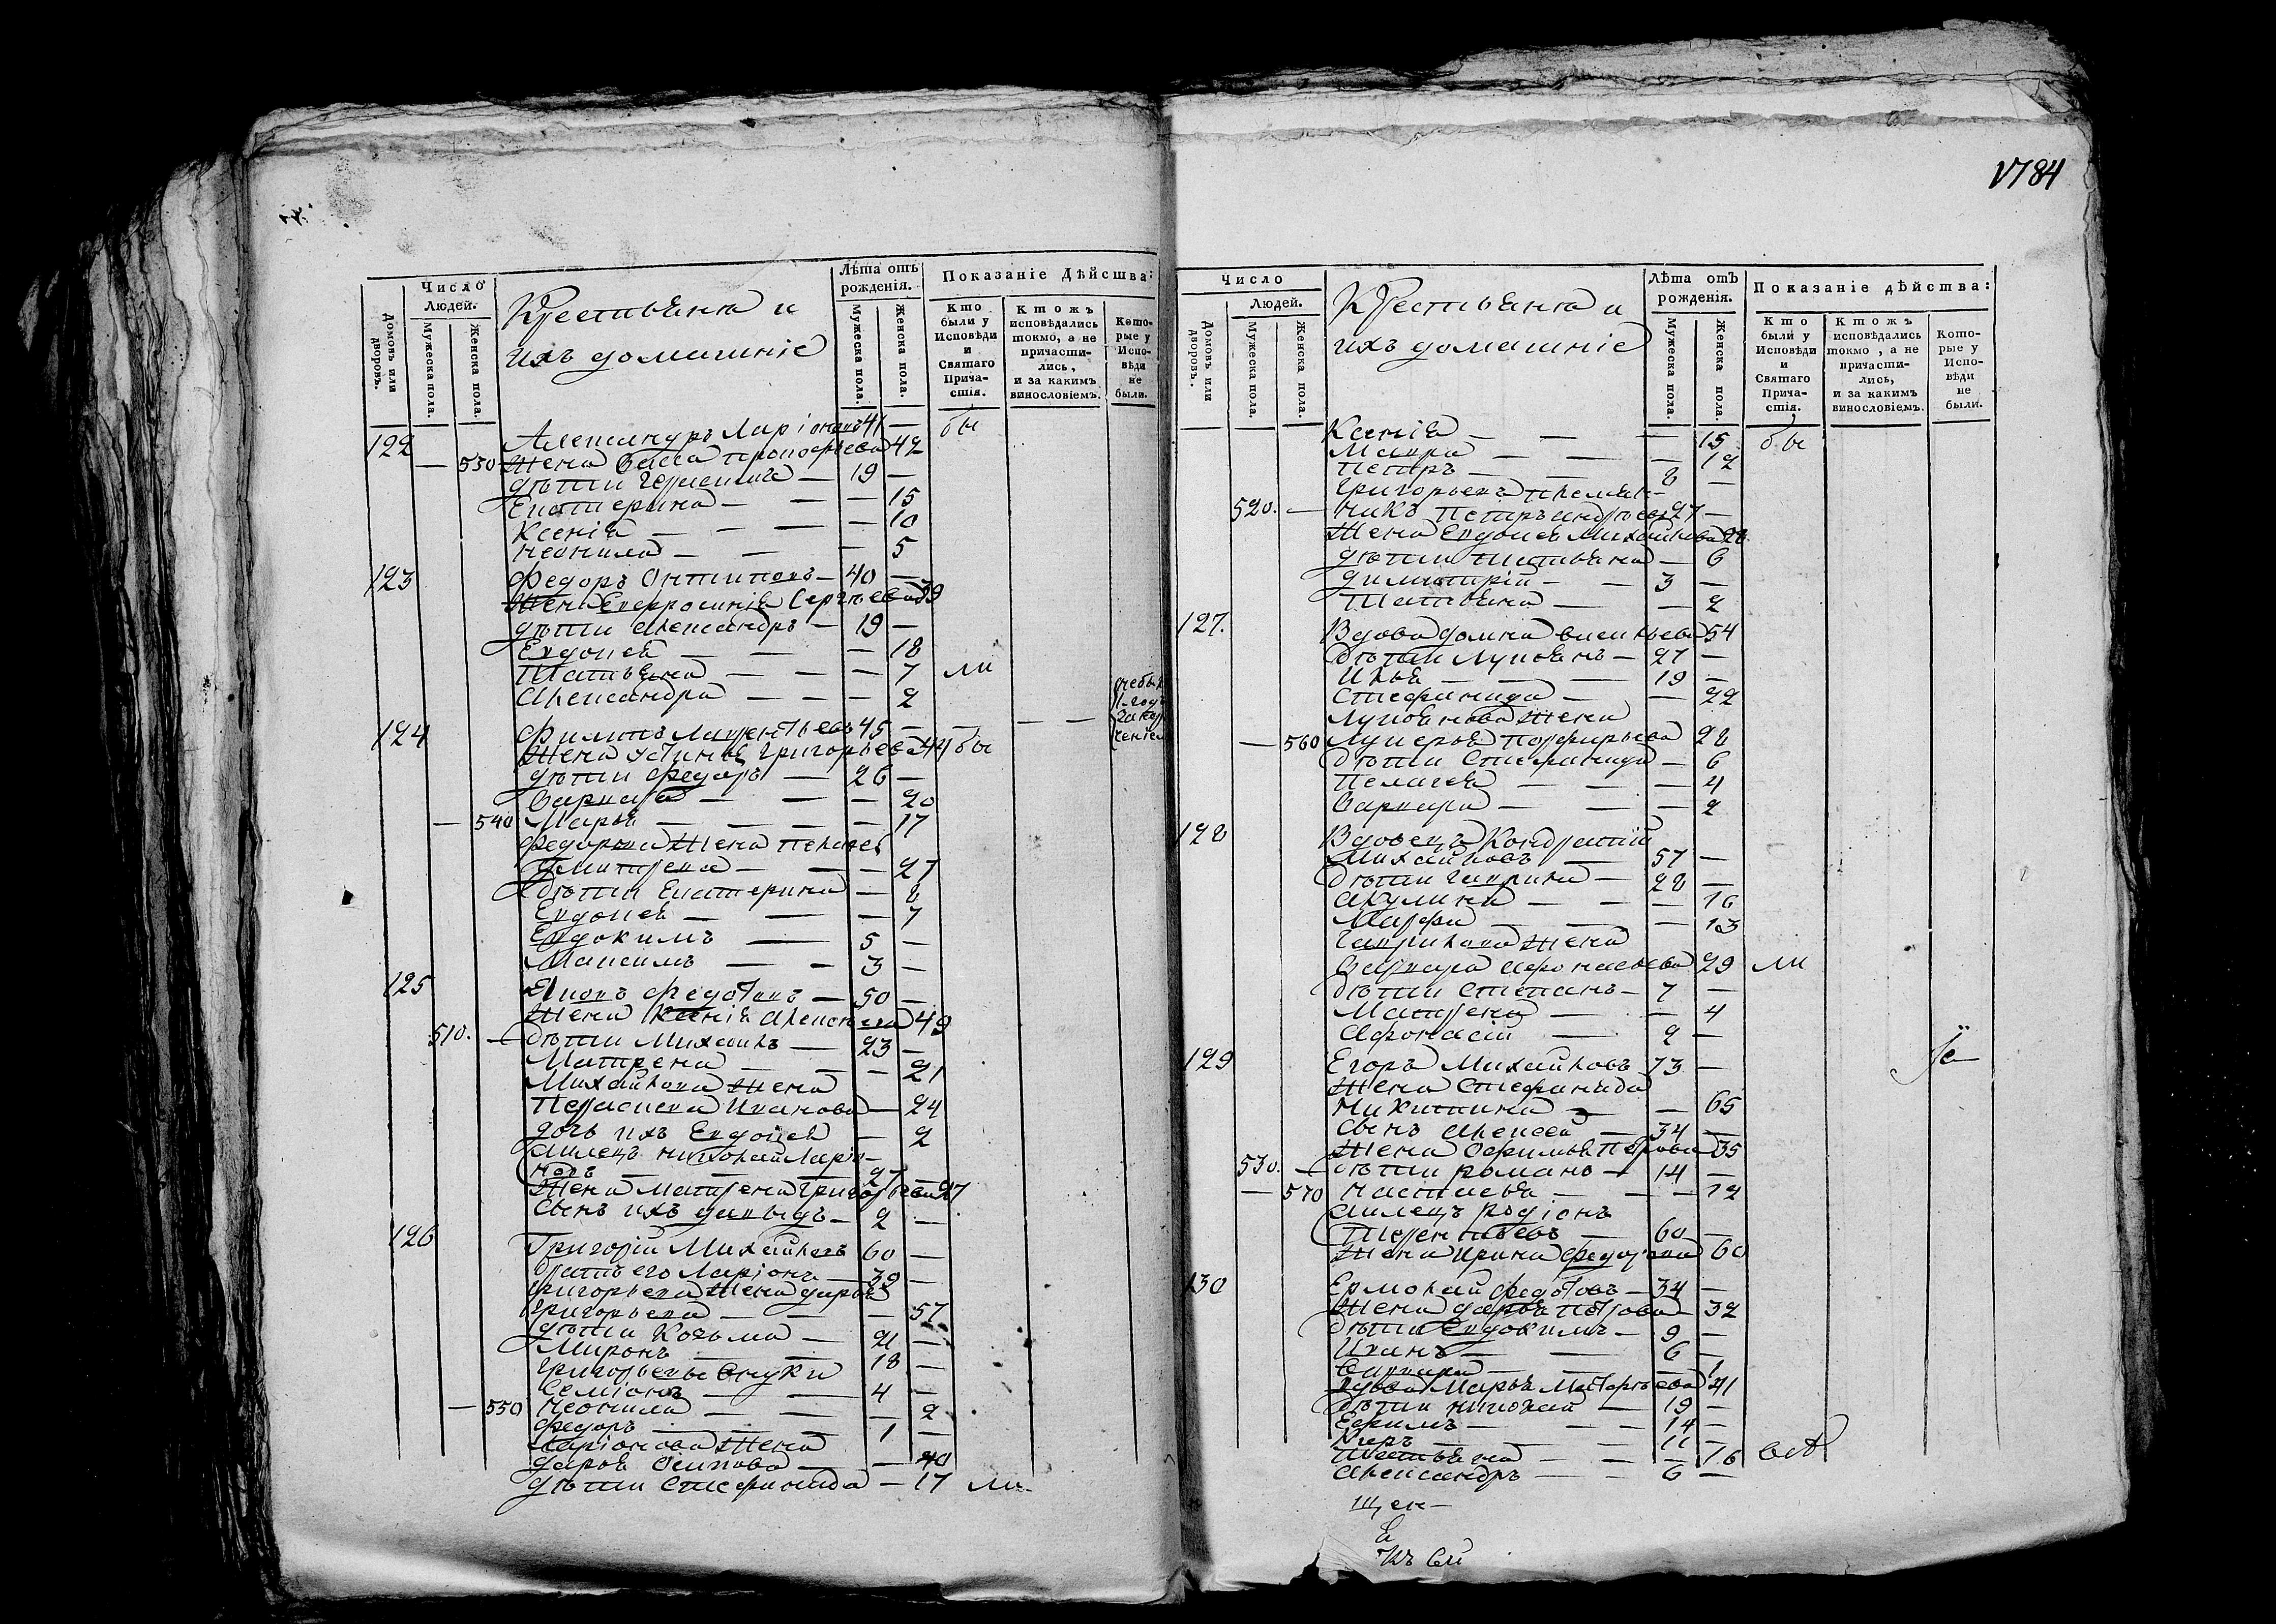 Число
Людей.
Домовъ или дворовъ.
Мужеска пола.
Женска пола.
Крестьяна и
ихъ домашніе
Лѣта отъ рожденія.
Мужеска пола.
Женска пола.
Показаніе Дѣйства:
Кто были у Исповѣди и Святаго Причастія.
Ктожъ исповѣдались токмо, а не причастились, и за какимъ винословіемъ.
Которые у Исповѣди не были.
122 Александръ Ларіоновъ 41 — бы
— 530 Жена Васса Прокофьева 42
дѣти — 19 —
Екатерина — — — 15
Ксенія — — — 10
Неонила — — — 5
123 Федоръ Антиповъ — 40 —
Жена Евфросинія Сергѣева 39
дѣти Александръ — 19 —
Евдокея — — — 18
Татьяна — — — 7 ли
Александра — — — 2
124 Филипъ Лаврентьевъ 45 — — — —
Жена Устинья Григорьева 44 бы
дѣти Федоръ — 26 —
Варвара — — — 20
— 540 Марья — — — 17
Федорова Жена Пелагея
Дмитрева — — — 27
дѣти Екатерина — 8
Евдокея — — — 7
Евдокимъ — 5 —
Максимъ — — 3 —
125 Яковъ Федотовъ — 50 —
Жена Ксенія Алексеева 49
510. — дѣти Михаилъ — 23 —
Матрена — — — 21
Михайлова Жена
Параскева Иванова — 24
дочь ихъ Евдокея — 2
Николай Ларіо-
новъ — — 27 —
Жена Матрена Григорьева 27
Сынъ ихъ Давыдъ — 2 —
126 Григорій Михайловъ 60 —
братъ его Ларіонъ — 39 —
Григорьева Жена Дарья
Григорьева — — — 57
дѣти Козьма — 21 —
Миронъ — — 18 —
Григорьевы Внуки
Семіонъ — — 4 —
— 550 Неонила — — — 2
Федоръ — — — 1 —
Ларіонова Жена
Дарья Осипова — — 40
дѣти Стефанида — 17 ли
1784
Число
Людей.
Домовъ или дворовъ.
Мужеска пола.
Женска пола.
Крестьяна и
ихъ домашніе
Лѣта отъ рожденія.
Мужеска пола.
Женска пола.
Показаніе дѣйства:
Кто были у Исповѣди и Святаго Причастія.
Ктожъ исповѣдались токмо, а не причастились, и за какимъ винословіемъ.
Которые у Исповѣди не были.
Ксенія — — — 15 бы
Мавра — — — 12
Петръ — — 8 —
Григорьевъ племян-
520. — никъ Петръ Андреевъ 27 —
Жена Евдокея Михайлова 28
дѣти Татьяна — 6
Димитрій — — 3 —
Татьяна — — 2
127. Вдова Домна Васильева 54
дѣти Лукьянъ — 27 —
Илья — — — 19 —
Стефанида — — 22
Лукьянова Жена
— 560 Лукерья Порфирьева 28
дѣти Стефанида — 6
Пелагея — — — 4
Варвара — — — 2
128 Вдовецъ Кондратій
Михайловъ — 57 —
дѣти Гаврила — 28 —
Акулина — — — 16
Марфа — — — 13
Гаврилова Жена
Варвара Афонасьева 29 ли
дѣти Степанъ — 7 —
Матрена — — 4
Афонасій — 2 —
129 Егоръ Михайловъ 73 —
Жена Стефанида
Никитина — — 65
Сынъ Алексей — 34 —
Жена Офимья Петрова 35
530. — дѣти Романъ — 14 —
— 570 Настасья — — — 12
Родіонъ
Терентьевъ — 60 —
Жена Ирина Федорова 60
130 Ермолай Федотовъ — 34 —
Жена Дарья Петрова — 32
дѣти Евдокимъ — 9 —
Иванъ — — 6 —
Варвара — — —
Вдова Марья 41
дѣти Николай — 19 —
Ефимъ — — — 14 —
— — — 11 —
Татьяна — — — 16
Александръ — — 6 —